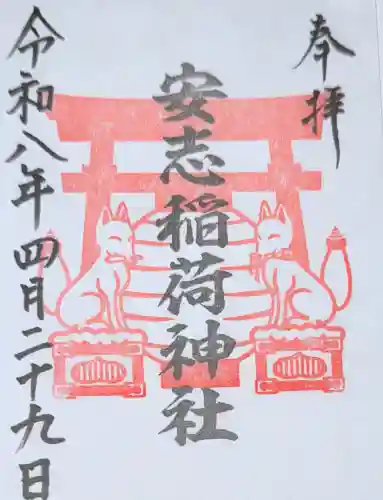 奉拝
安志稲荷神社
令和八年四月二十九日